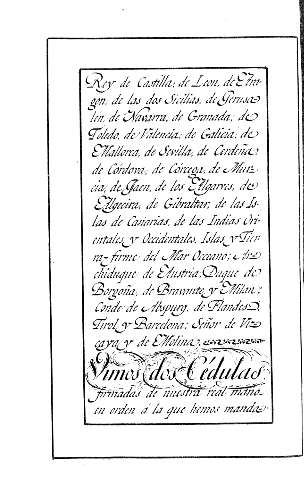 Rey de Castilla, de Leon, de Ara-
gon, de las dos Sicilias, de Gerusa-
len, de Navarra, de Granada, de
Toledo, de Valencia, de Galicia, de
Mallorca, de Sevilla, de Cerdeña
de Córdova, de Córcega, de Mur-
cia, de Gaen, de los Algarves, de
Algecira, de Gibraltar, de las Is-
las de Canarias, de las Indias Ori-
entales, y Occidentales, Islas, y Tier-
ra-firme del Mar Oceano; Ar-
chiduque de Austria; Duque de
Borgoña, de Bravante, y Milan;
Conde de Abspurg, de Flandes,
Tirol, y Barcelona; Señor de Viz-
caya, y de Molina,
Vimos dos Cédulas
firmadas de nuestra real mano
en orden á la que hemos manda